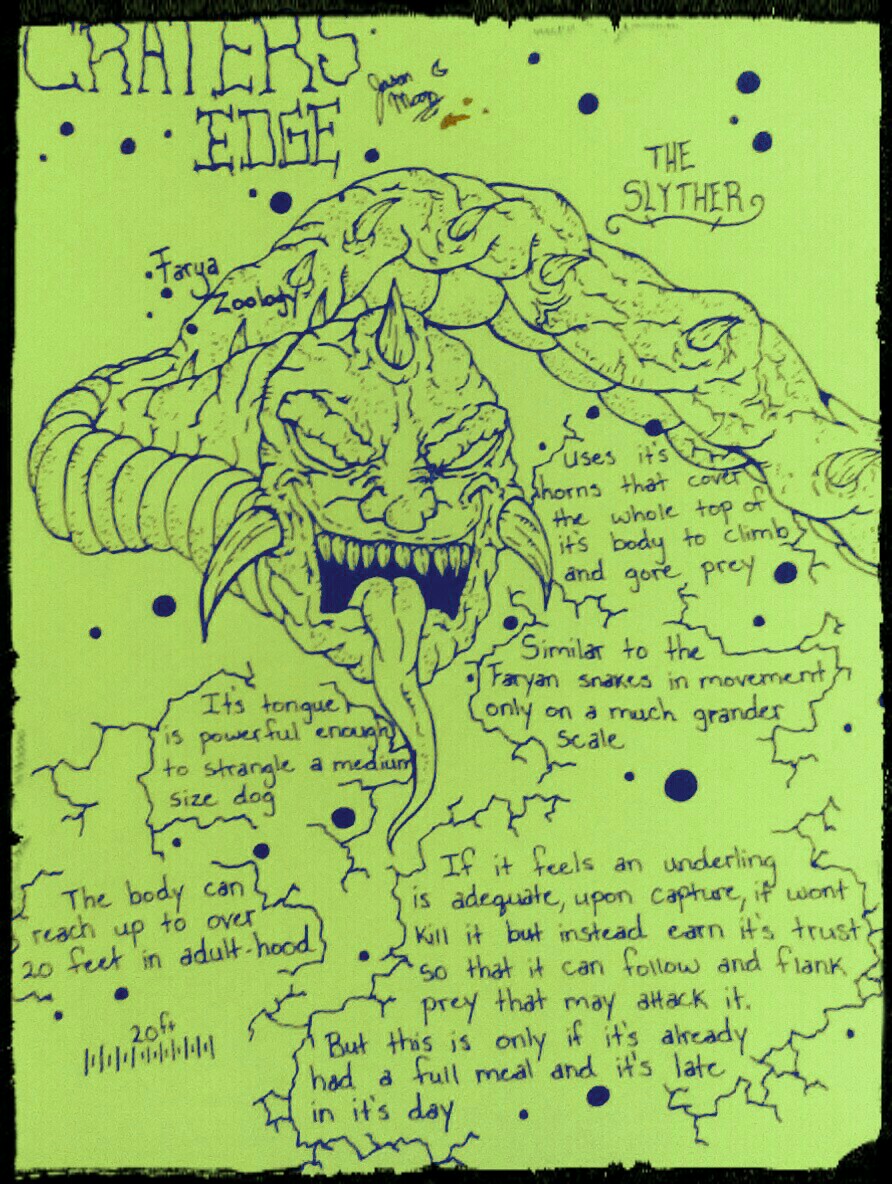 CRATERS
EDGE
Jason
Moon
THE
SLYTHER
Farya
Zoology
uses it's
horns that cover
the whole top of
it's body to climb
and gore prey
Similar to the
Faryan snakes in movement
only on a much grander
scale
It's tongue
is powerful enough
to strangle a medium
size dog
The body can
reach up to over
20 feet in adult-hood
20ft
If it feels an underling
is adequate, upon capture, it wont
kill it but instead earn it's trust
so that it can follow and flank
prey that may attack it.
But this is only if it's already
had a full meal and it's late
in it's day